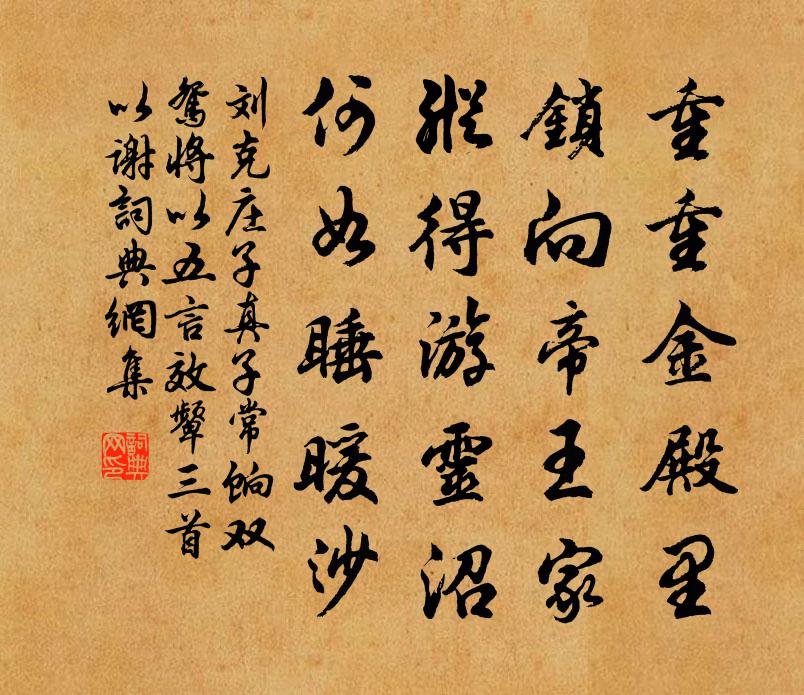 重重金殿里
鎖向帝王家
縱得游靈沼
何如睡暖沙
刘克庄子真子常餉双
鴛將以五言效顰三首
以谢詞典網集
詞典网印